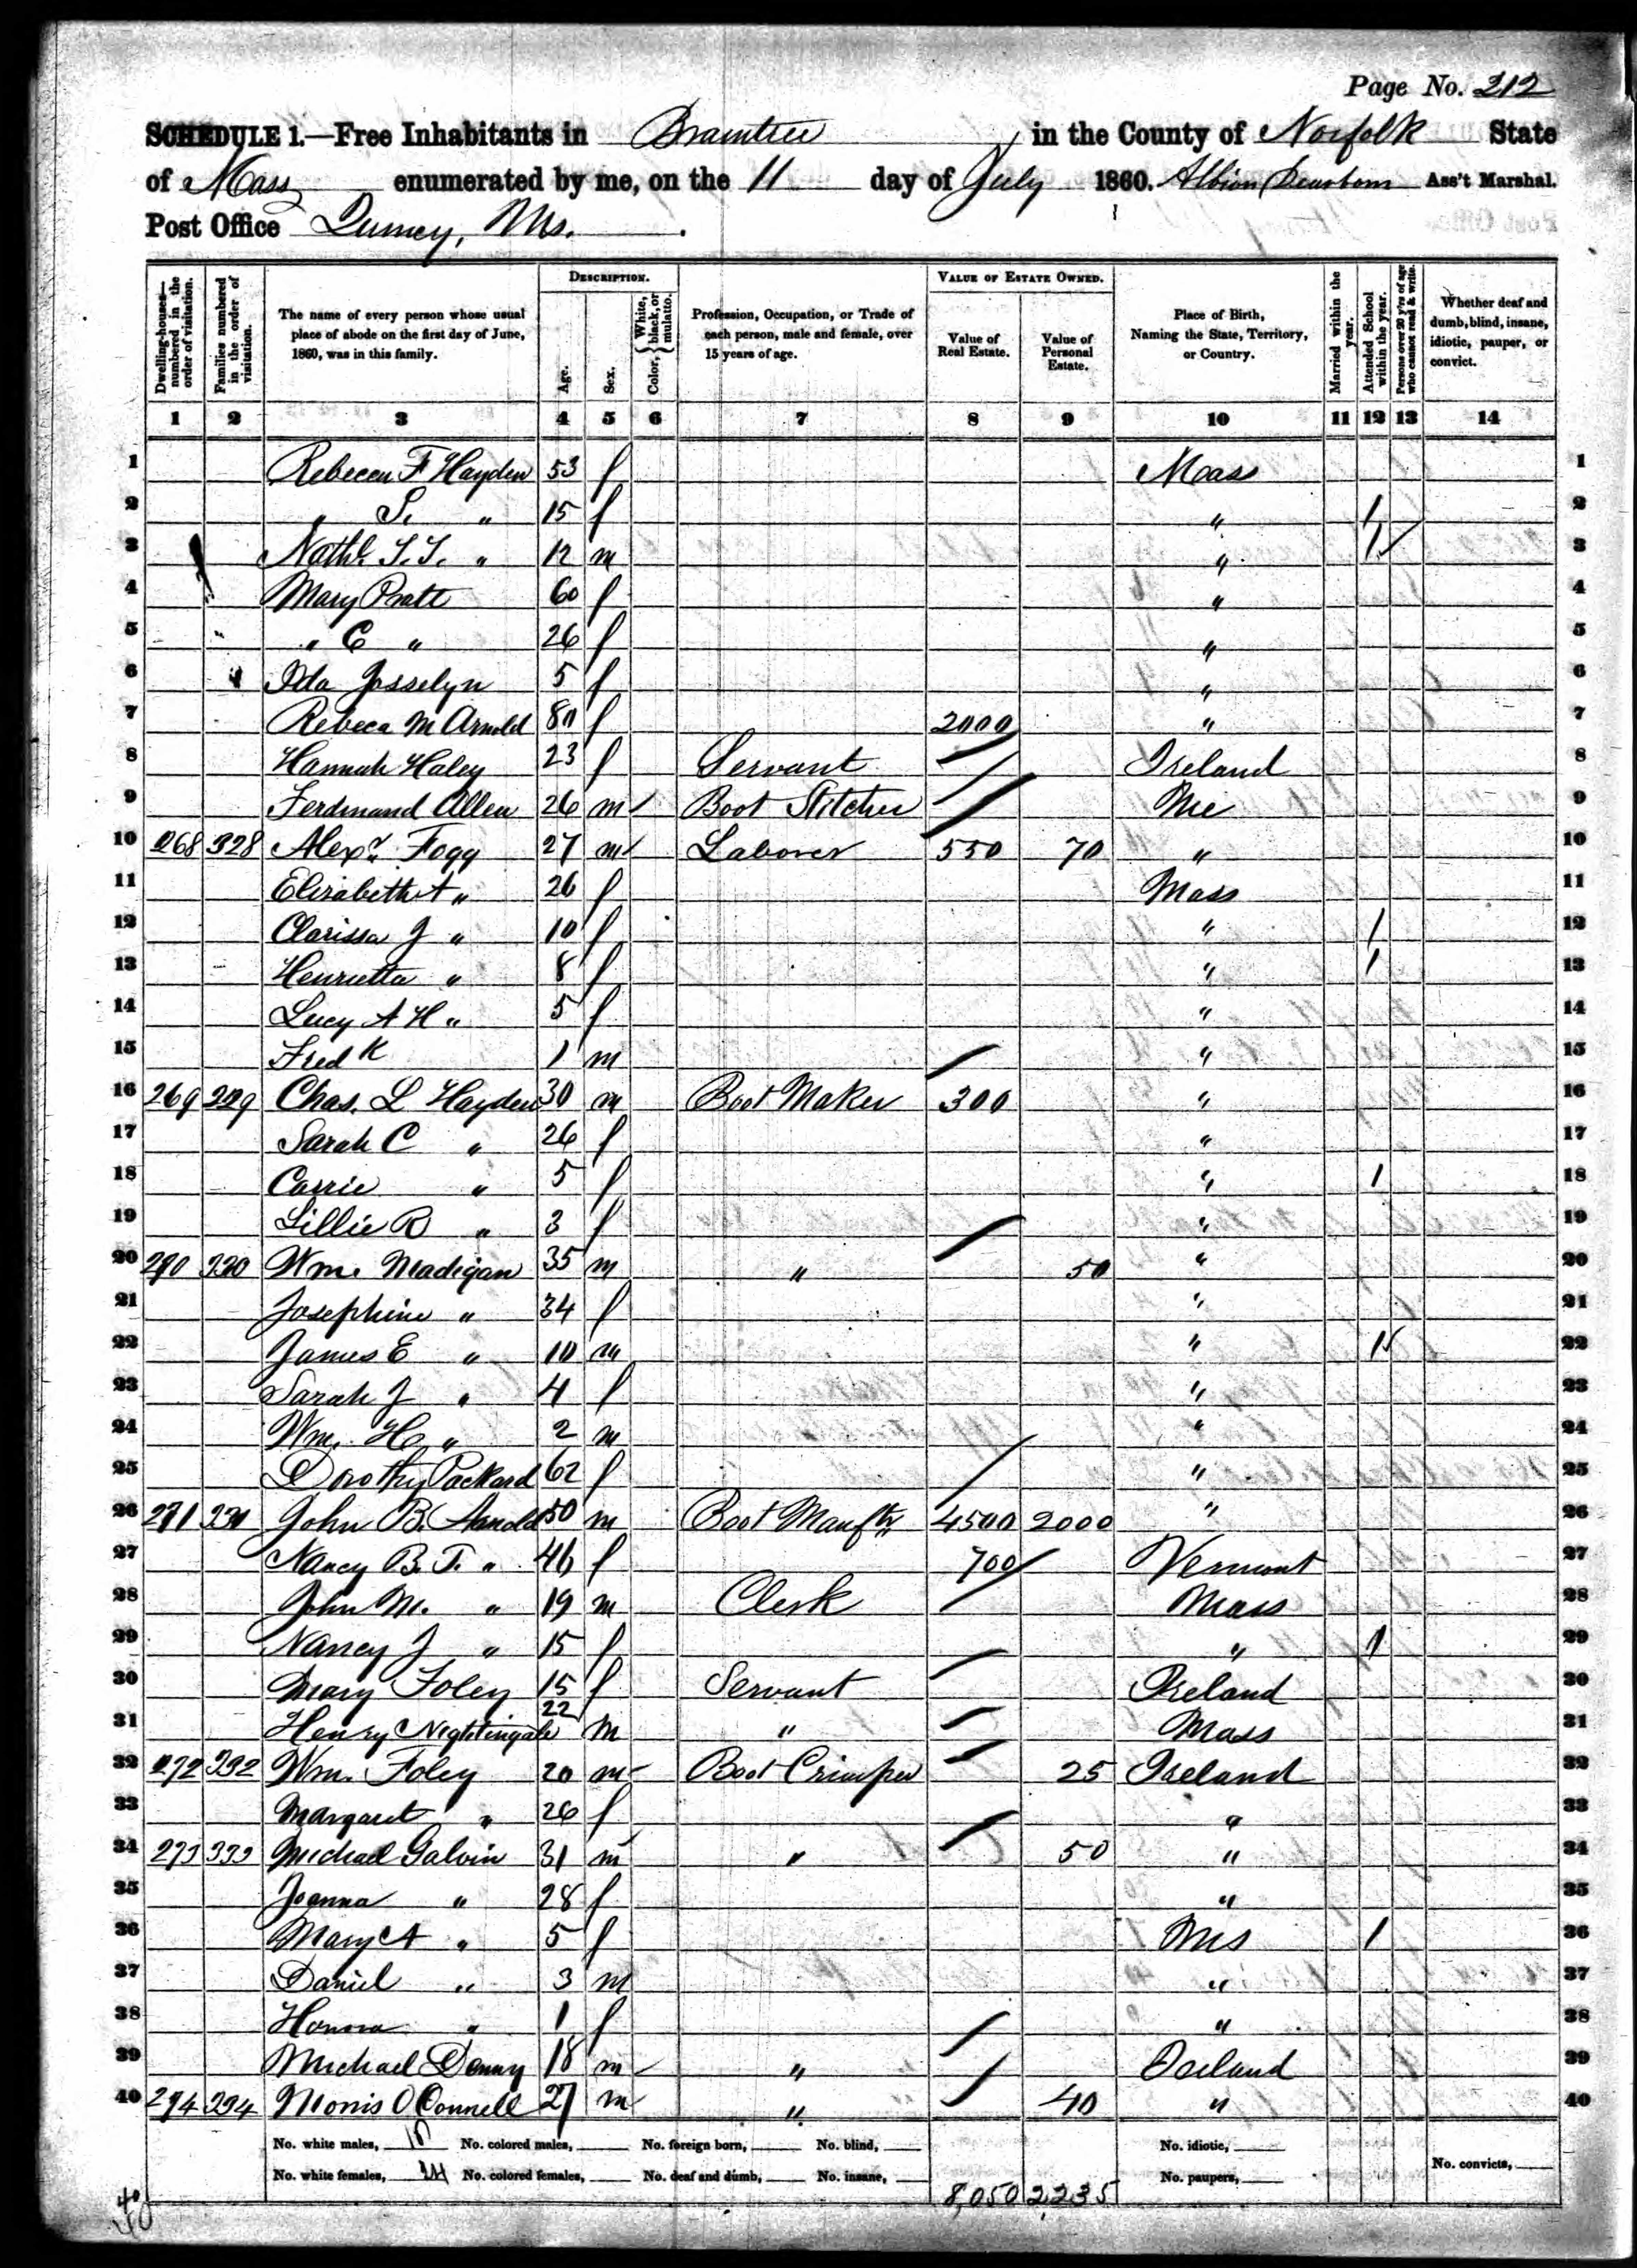 Page No. 212
SCHEDULE 1.—Free Inhabitants in Braintree in the County of Norfolk State
of Mass enumerated by me, on the 11 day of July 1860. Albion Dearborn Ass't Marshal.
Post Office Quincy, Ms.
Dwelling-houses—numbered in the order of visitation.
Families numbered in the order of visitation.
The name of every person whose usual place of abode on the first day of June, 1860, was in this family.
DESCRIPTION.
Age.
Sex.
Color, White, black, or mulatto.
Profession, Occupation, or Trade of each person, male and female, over 15 years of age.
VALUE OF ESTATE OWNED.
Value of Real Estate.
Value of Personal Estate.
Place of Birth, Naming the State, Territory, or Country.
Married within the year.
Attended School within the year.
Persons over 20 y'rs of age who cannot read & write.
Whether deaf and dumb, blind, insane, idiotic, pauper, or convict.
1 2 3 4 5 6 7 8 9 10 11 12 13 14
1 Rebecca F Hayden 53 f Mass 1
2 " S. " 15 f " / 2
3 Nathl. T. T. " 12 m " / 3
4 Mary Pratt 60 f " 4
5 " C " 26 f " 5
6 Ida Josselyn 5 f " 6
7 Rebeca M Arnold 80 f 2000 " 7
8 Hannah Haley 23 f Servant Ireland 8
9 Ferdinand Allen 26 m Boot Stitcher Me 9
10 268 328 Alexr. Fogg 27 m Laborer 550 70 " 10
11 Elizabeth A " 26 f Mass 11
12 Clarissa J " 10 f " / 12
13 Henrietta " 8 f " / 13
14 Lucy A H " 5 f " 14
15 Fred K 1 m " 15
16 269 329 Chas. L Hayden 30 m Boot Maker 300 " 16
17 Sarah C " 26 f " 17
18 Carrie " 5 f " 1 18
19 Lillie R " 3 f " 19
20 270 330 Wm. Madigan 35 m " 50 " 20
21 Josephine " 34 f " 21
22 James E " 10 m " 1 22
23 Sarah J " 4 f " 23
24 Wm. H " 2 m " 24
25 Dorothy Packard 62 f " 25
26 271 331 John B. Arnold 50 m Boot Manuftr 4500 2000 " 26
27 Nancy B. T. " 46 f 700 Vermont 27
28 John M. " 19 m Clerk Mass 28
29 Nancy J " 15 f " 1 29
30 Mary Foley 15 f Servant Ireland 30
31 Henry Nightingale 22 m " Mass 31
32 272 332 Wm. Foley 20 m Boot Crimper 25 Ireland 32
33 Margaret " 26 f " 33
34 273 333 Michael Galvin 31 m " 50 " 34
35 Joanna " 28 f " 35
36 Mary A " 5 f Ms 1 36
37 Daniel " 3 m " 37
38 Honora " 1 f " 38
39 Michael Denny 18 m " Ireland 39
40 274 334 Morris O Connell 27 m " 40 " 40
No. white males, No. colored males, No. foreign born, No. blind, No. idiotic,
No. white females, 24 No. colored females, No. deaf and dumb, No. insane, No. paupers, No. convicts,
8,050 2,235
40